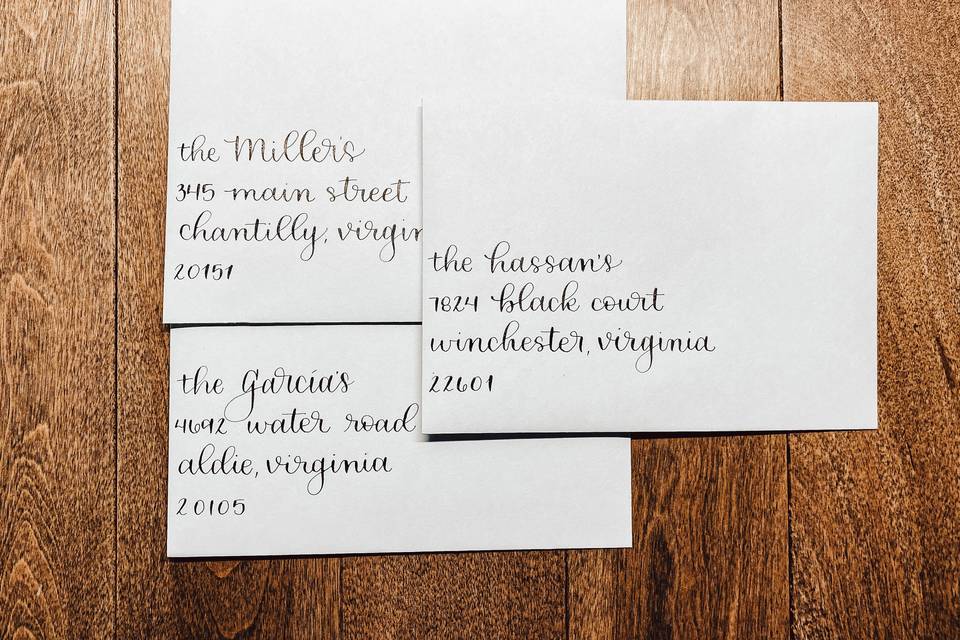 the Miller's
345 main street
chantilly, virgin
20151
the hassan's
7824 black court
winchester, virginia
22601
the Garcia's
4692 water road
aldie, virginia
20105